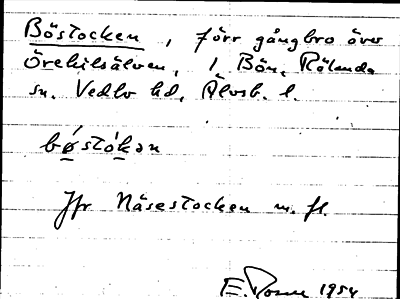 Böstocken, förr gångbro över
Örekilsälven, 1 Bön, Rölanda
sn. Vedbo hd, Älvsb. l.
bǿstókən
Jfr Näsestocken m. fl.
E. 1954